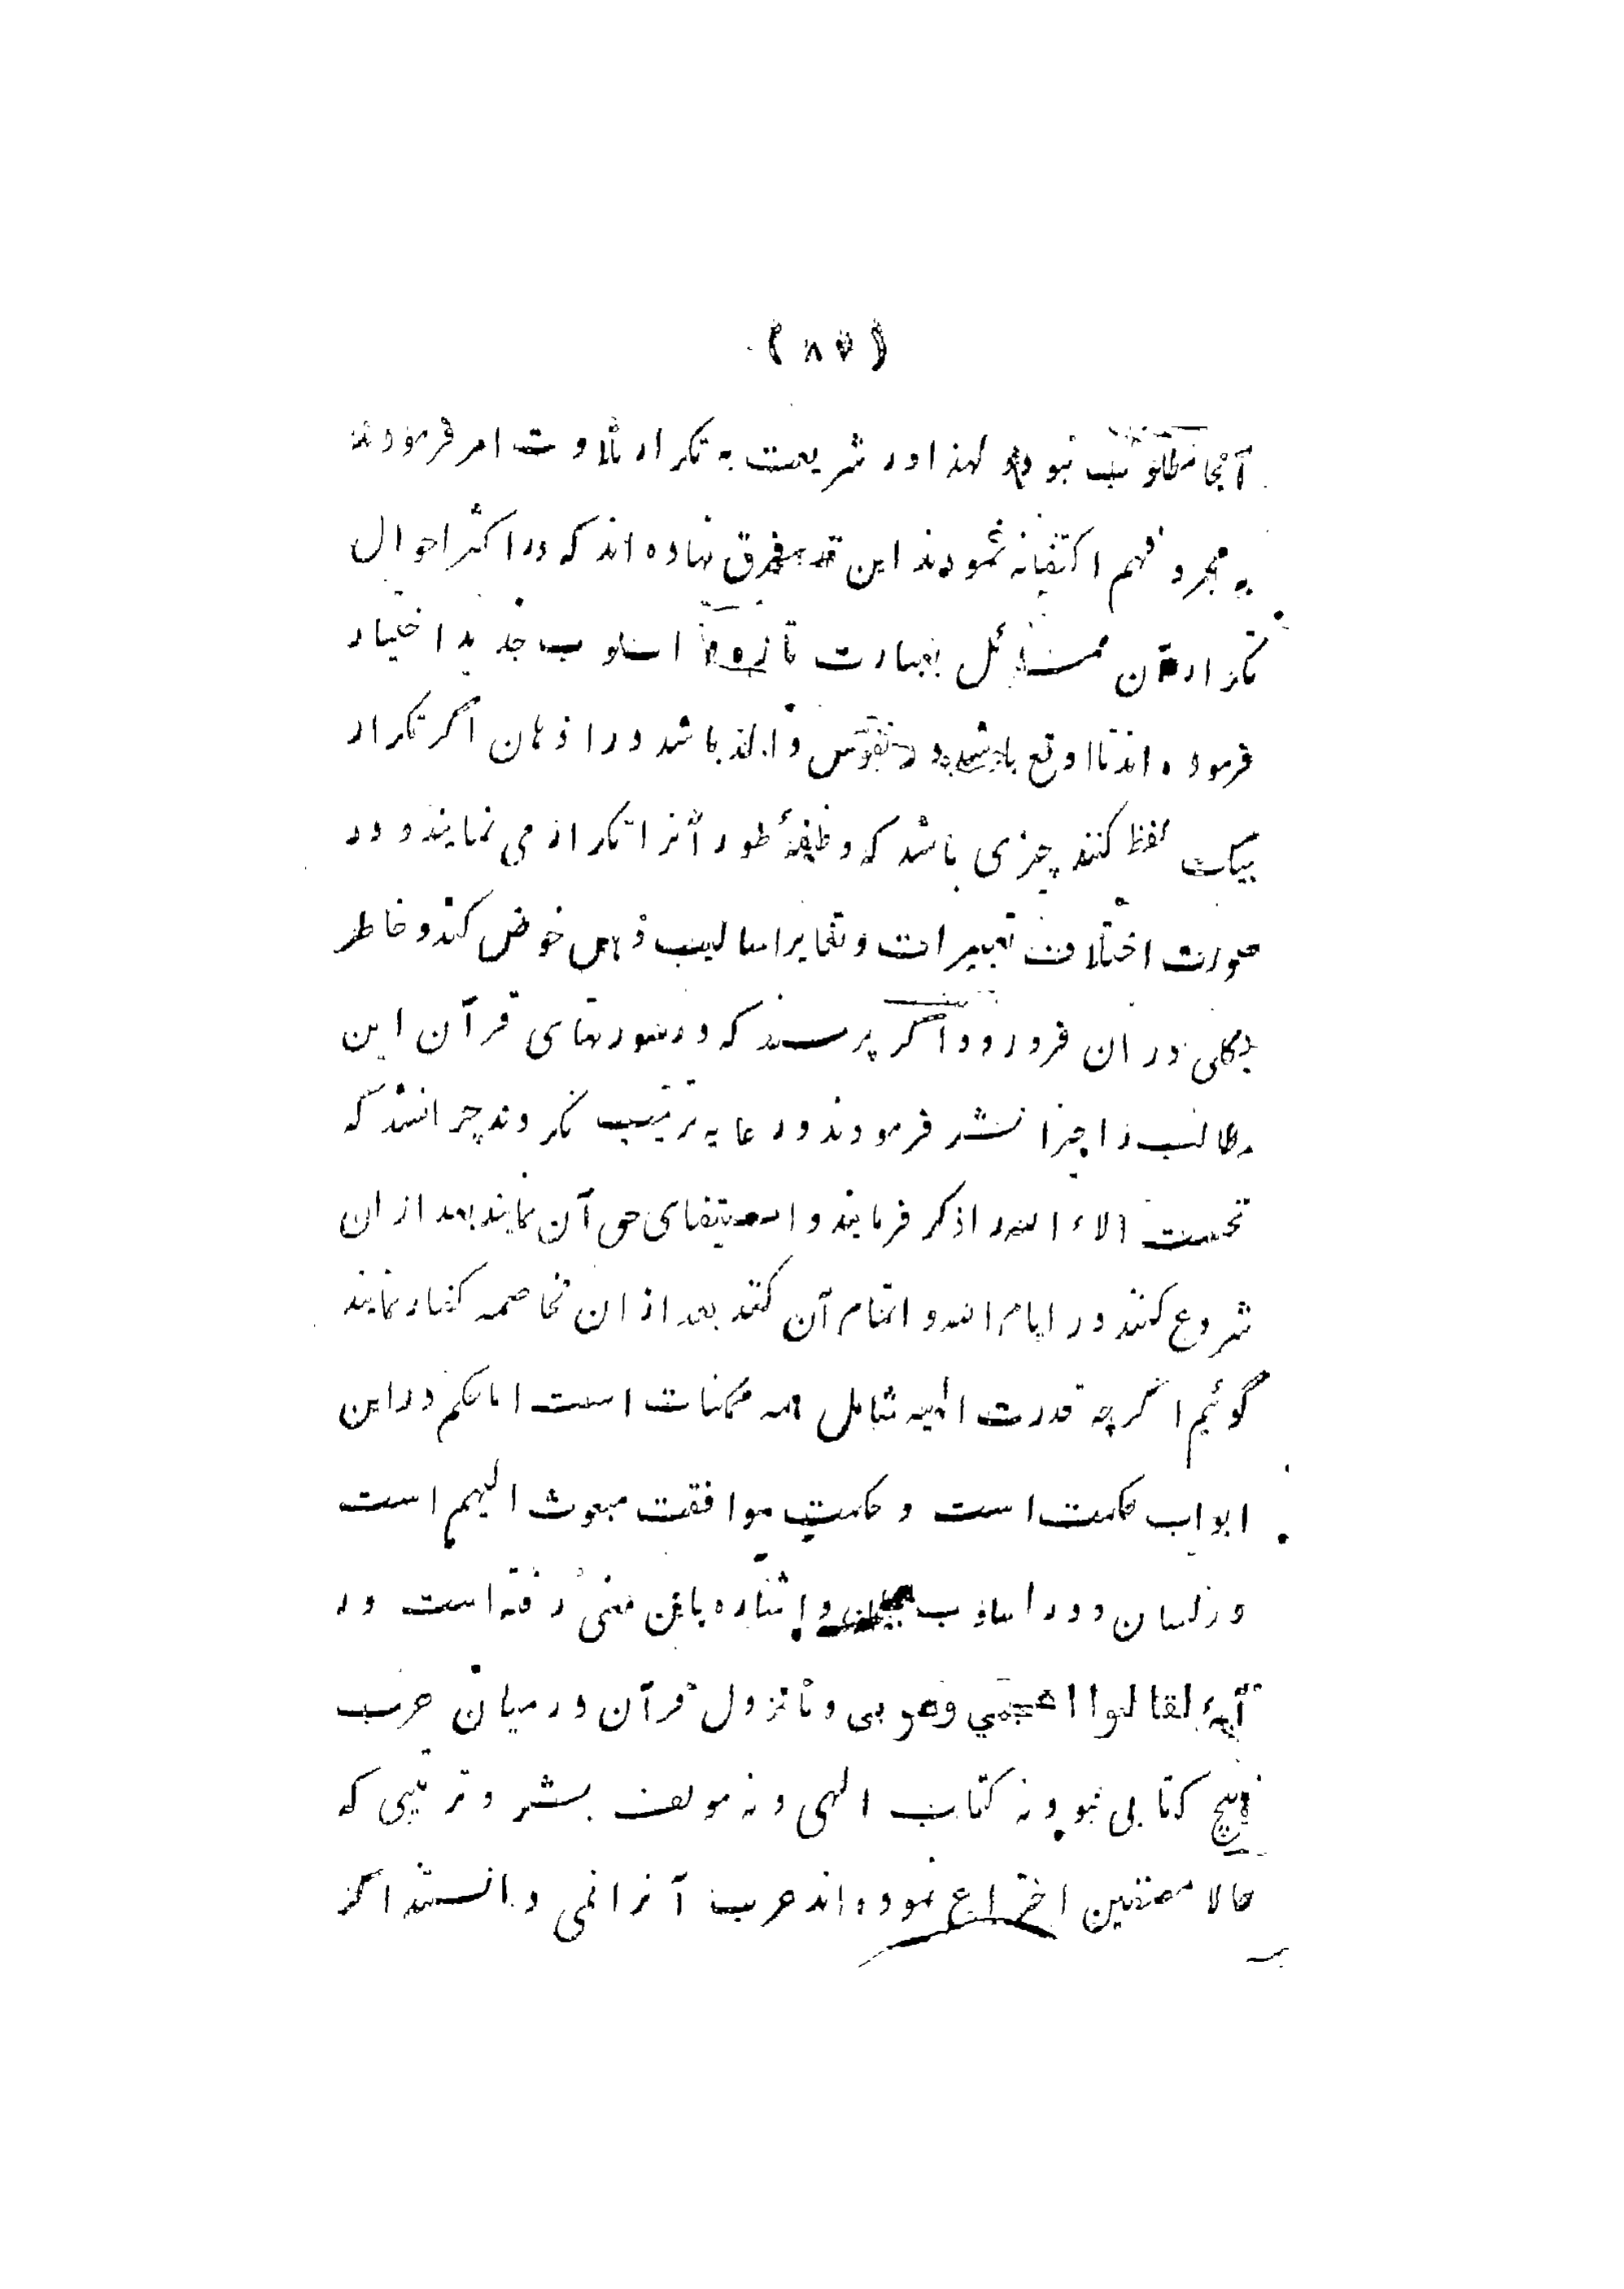 آنجا مطلوب نبود لهذا در شریعت به تکرار تلاوت امر فرمودند
به مجرد فهم اکتفا نه نمودند این قدر فرق نهاده اند که در اکثر احوال
تکرار آن مسائل بعبارت تازه و اسلوب جدید اختیار
فرموده اند تا اوقع باشد در نفوس و الذ باشد در اذهان اگر تکرار
بیک لفظ کنند چیزی باشد که وظیفهٔ طور آنرا تکرار می نمایند و در
صورت اختلاف تعبیرات و تغایر اسالیب ذهن خوض کند و خاطر
بکلی در ان فرو رود اگر پرسند که در سورتهای قرآن این
مطالب را چرا نشر فرمودند و رعایه ترتیب نکردند چرا نشد که
نخست الاء الله را ذکر فرمایند و استیفای حق آن نمایند بعد از ان
شروع کنند در ایام الله و اتمام آن کنند بعد از ان مخاصمه کفار نمایند
گوئیم اگرچه قدرت الهیه شامل همه ممکنات است اما حکم در این
ابواب حکمت است و حکمت موافقت مبعوث الیهم است
در لسان و در اسلوب بیان و اشاره باین معنی رفته است در
آیهٔ لقالوا اعجمي وعربی و تا نزول قرآن در میان عرب
هیچ کتابی نبود نه کتاب الهی و نه مولف بشر و ترتیبی که
حالا مصنفین اختراع نموده اند عرب آنرا نمی دانستند اگر